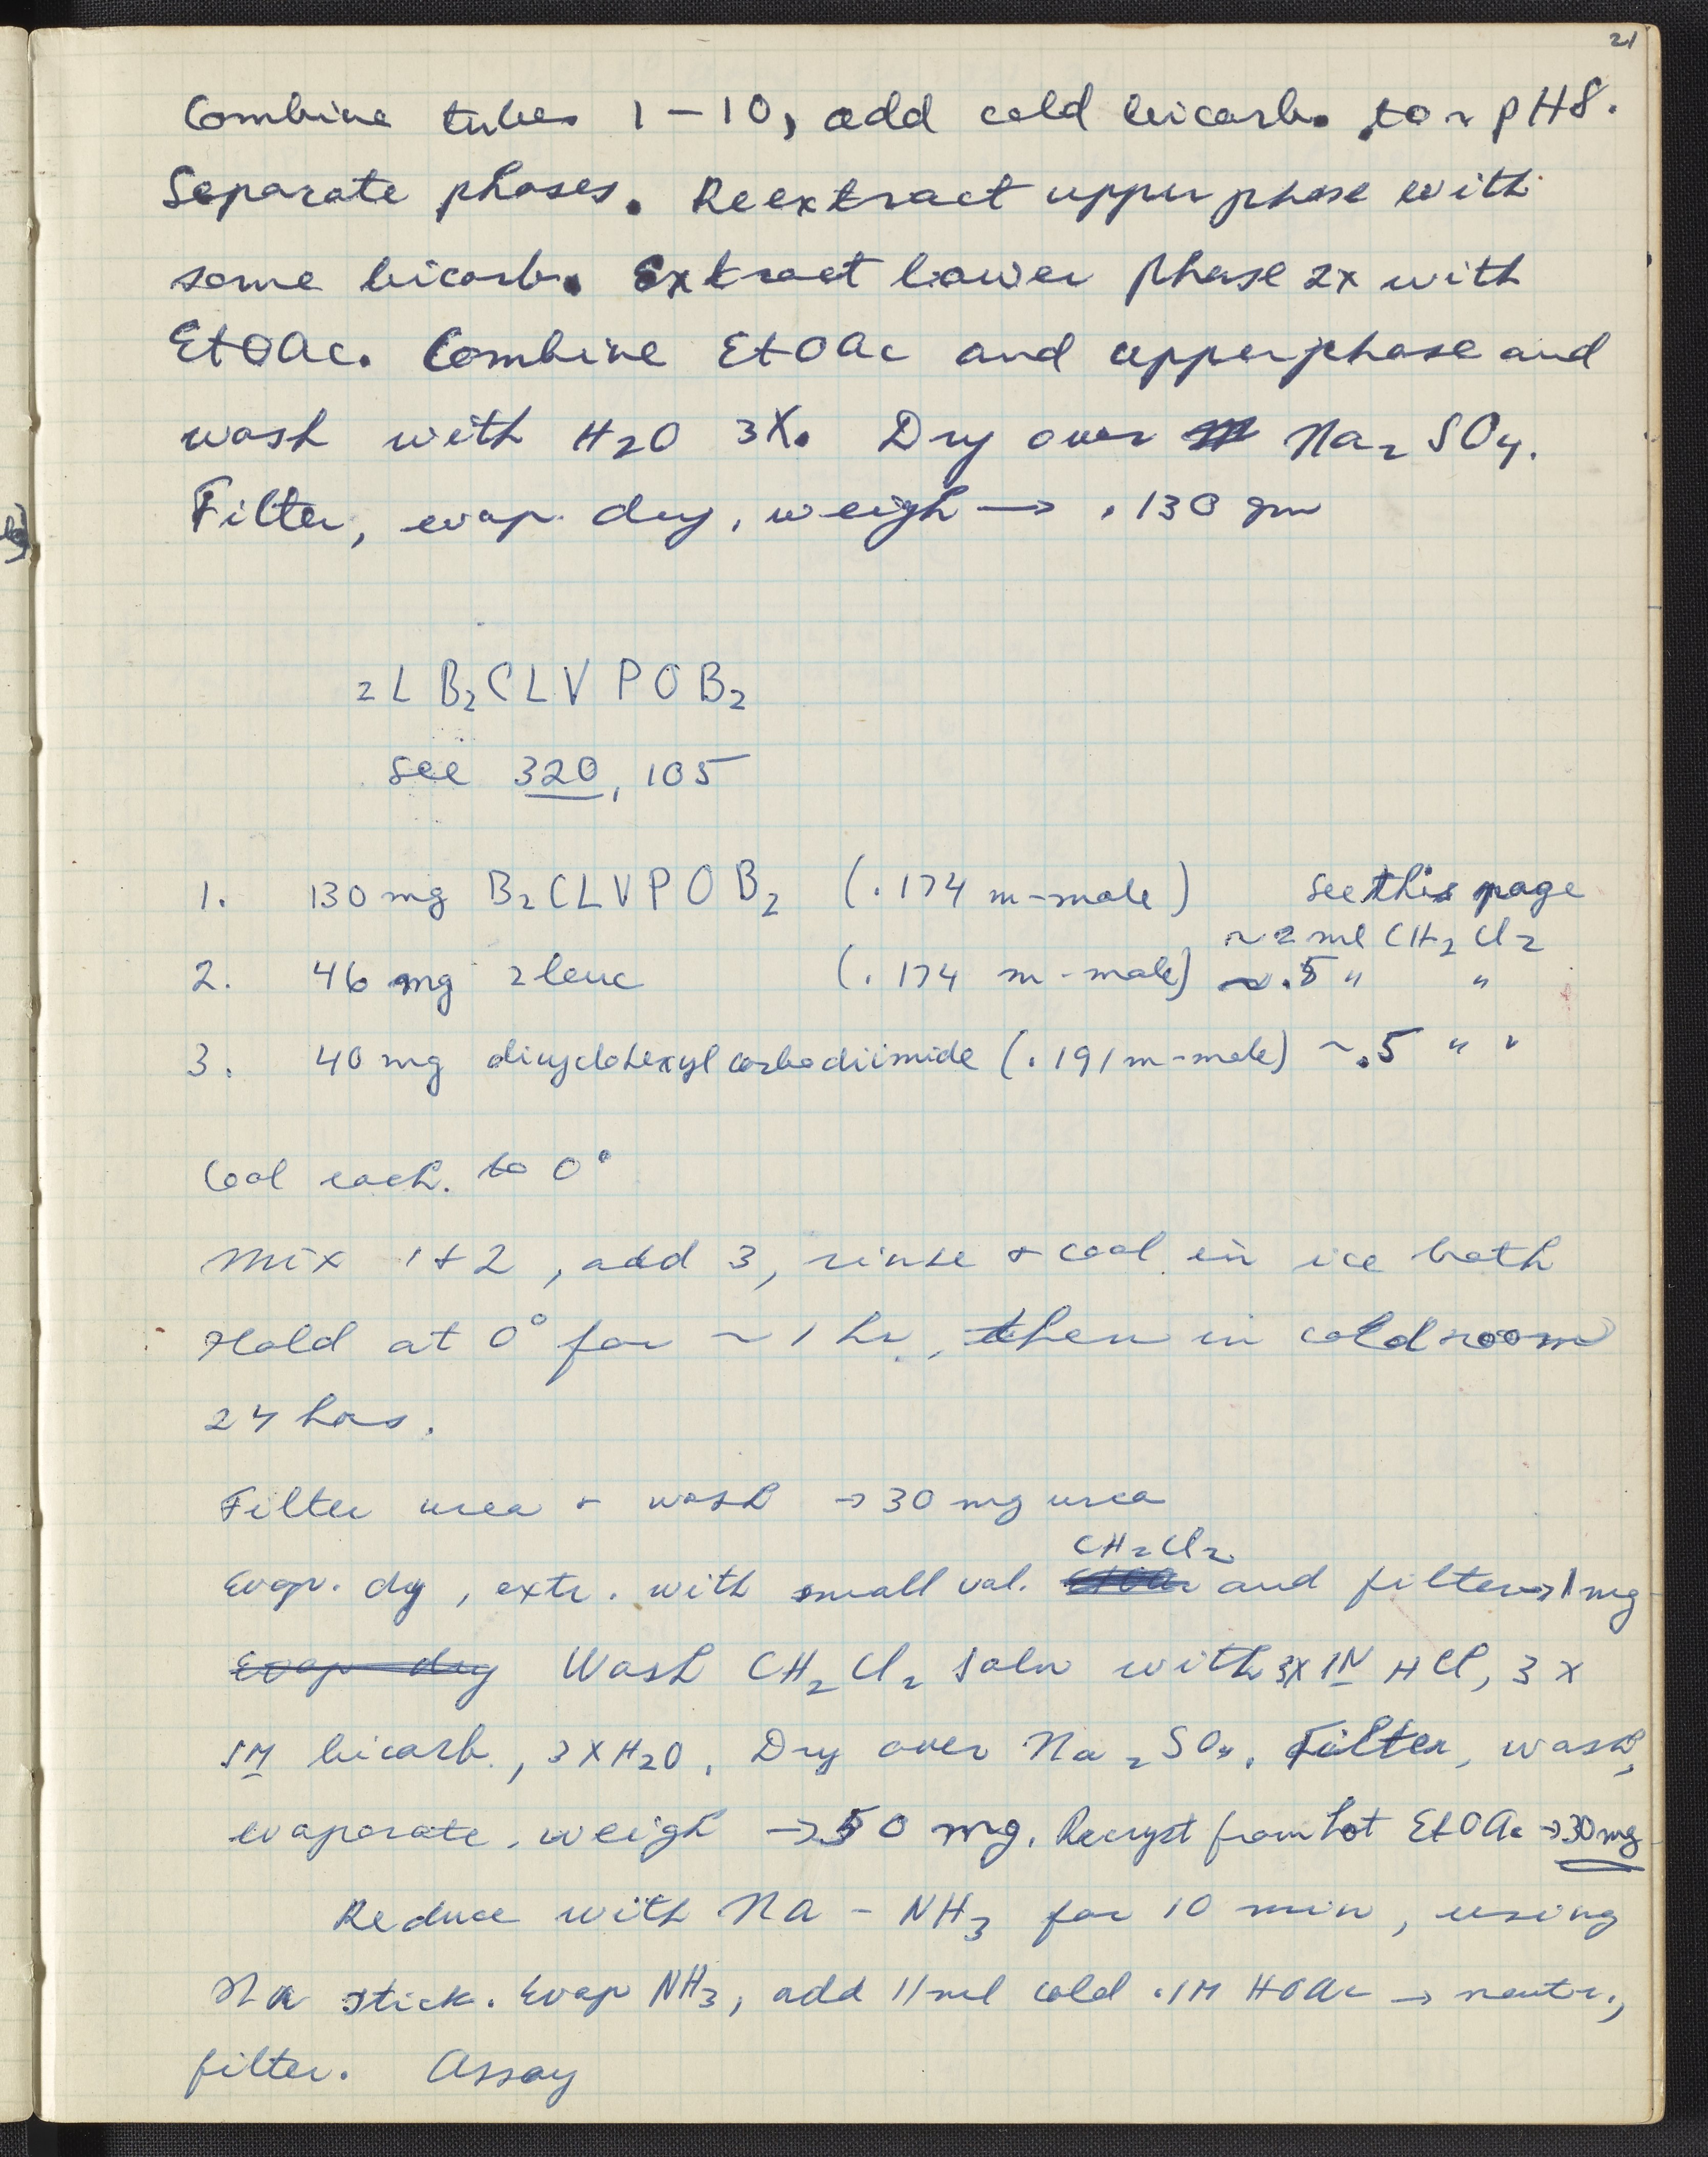 21
Combine tubes 1-10, add cold bicarb. to ~ pH8.
Separate phases. Reextract upper phase with
some bicarb. Extract lower phase 2x with
EtOAc. Combine EtOAc and upper phase and
wash with H2O 3X. Dry over Na2SO4.
Filter, evap. dry, weigh → .130 gm
zLB2CLVPOB2
see 320, 105
1. 130 mg B2CLVPOB2 (.174 m-mole) see this page
~2 ml CH2Cl2
2. 46 mg zleuc (.174 m-mole) ~.5 " "
3. 40 mg dicyclohexylcarbodiimide (.191 m-mole) ~.5 " "
Cool each. to 0°
Mix 1+2, add 3, rinse + cool in ice bath
Hold at 0° for ~ 1 hr., then in coldroom
24 hrs.
Filter urea + wash → 30 mg urea
CH2Cl2
Evap. dry, extr. with small vol. EtOAc and filter → 1 mg
Evap dry Wash CH2Cl2 soln with 3X 1N HCl, 3 x
1M bicarb., 3XH2O. Dry over Na2SO4. Filter, wash,
evaporate, weigh → 50 mg. Recryst from hot EtOAc → 30 mg
Reduce with Na - NH3 for 10 min, using
Na stick. Evap NH3, add 11 ml cold .1M HOAc → neutr.,
filter. Assay